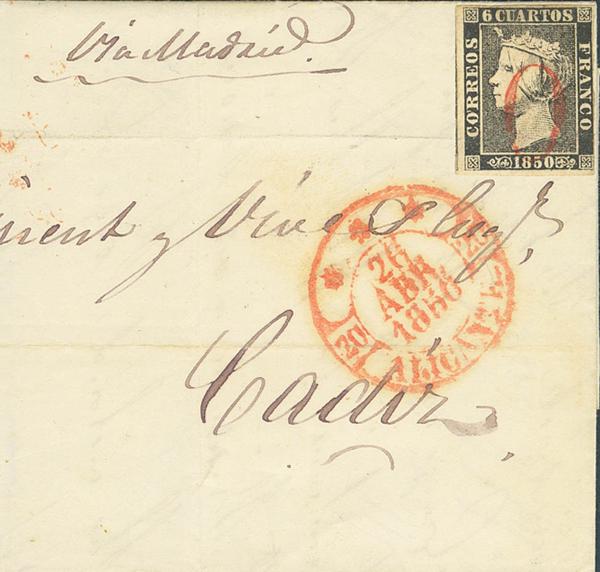 Via Madrid.
6 CUARTOS
CORREOS
FRANCO
1850
y Vive
26
ABR
1850
20
ALICANTE
Cadiz